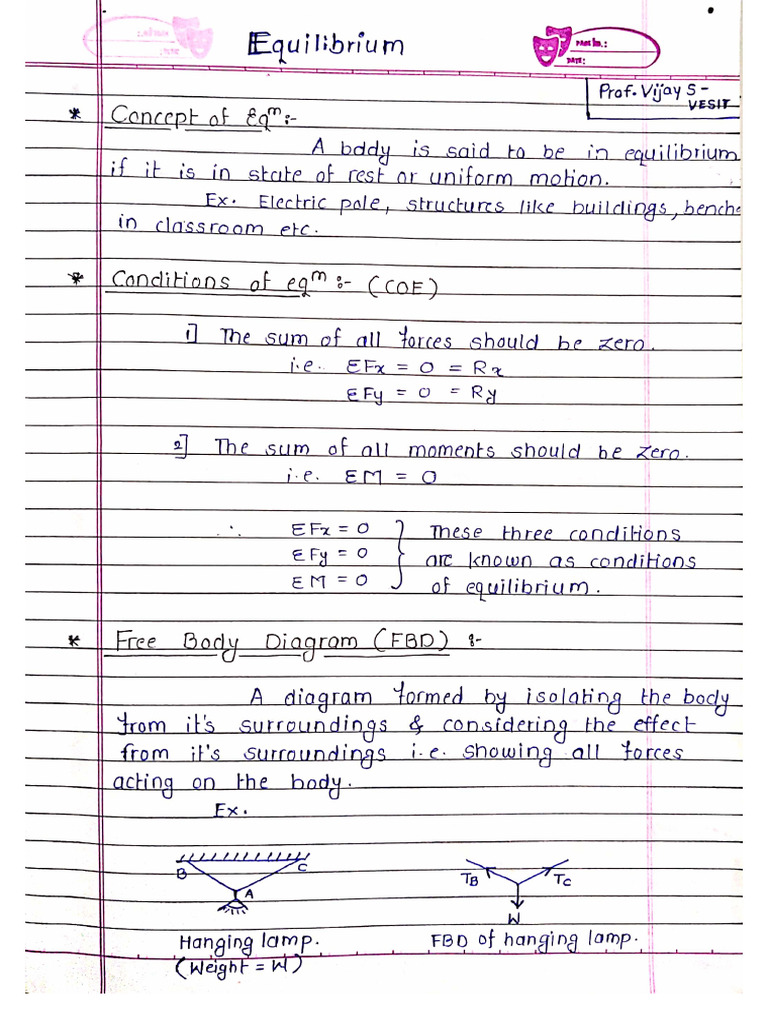 Equilibrium
PAGE No.:
DATE:
Prof. Vijay S-
VESIT
* Concept of Eqm:-
A body is said to be in equilibrium
if it is in state of rest or uniform motion.
Ex. Electric pole, structures like buildings, benche
in classroom etc.
* Conditions of eqm :- (COE)
1] The sum of all forces should be zero.
i.e. ΣFx = 0 = Rx
ΣFy = 0 = Ry
2] The sum of all moments should be zero.
i.e. ΣM = 0
∴ ΣFx = 0 } These three conditions
ΣFy = 0 } are known as conditions
ΣM = 0 } of equilibrium.
* Free Body Diagram (FBD) :-
A diagram formed by isolating the body
from it's surroundings & considering the effect
from it's surroundings i.e. showing all forces
acting on the body.
Ex.
B C
A
TB TC
W
Hanging lamp.
(Weight = W)
FBD of hanging lamp.